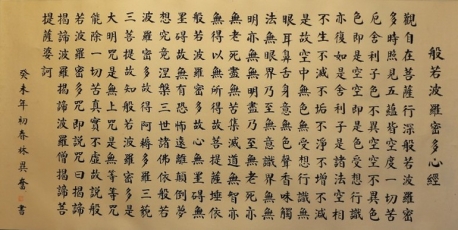 般若波羅密多心經
觀自在菩薩行深般若波羅密
多時照見五蘊皆空度一切苦
厄舍利子色不異空空不異色
色即是空空即是色受想行識
亦復如是舍利子是諸法空相
不生不滅不垢不淨不增不減
是故空中無色無受想行識無
眼耳鼻舌身意無色聲香味觸
法無眼界乃至無意識界無無
明亦無無明盡乃至無老死亦
無老死盡無苦集滅道無智亦
無得以無所得故菩提薩埵依
般若波羅密多故心無罣礙無
罣礙故無有恐怖遠離顛倒夢
想究竟涅槃三世諸佛依般若
波羅密多故得阿耨多羅三藐
三菩提故知般若波羅密多是
大明咒是無上咒是無等等咒
能除一切苦真實不虛故說般
若波羅密多咒即說咒曰揭諦
揭諦波羅揭諦波羅僧揭諦菩
提薩婆訶
癸未年初春林書